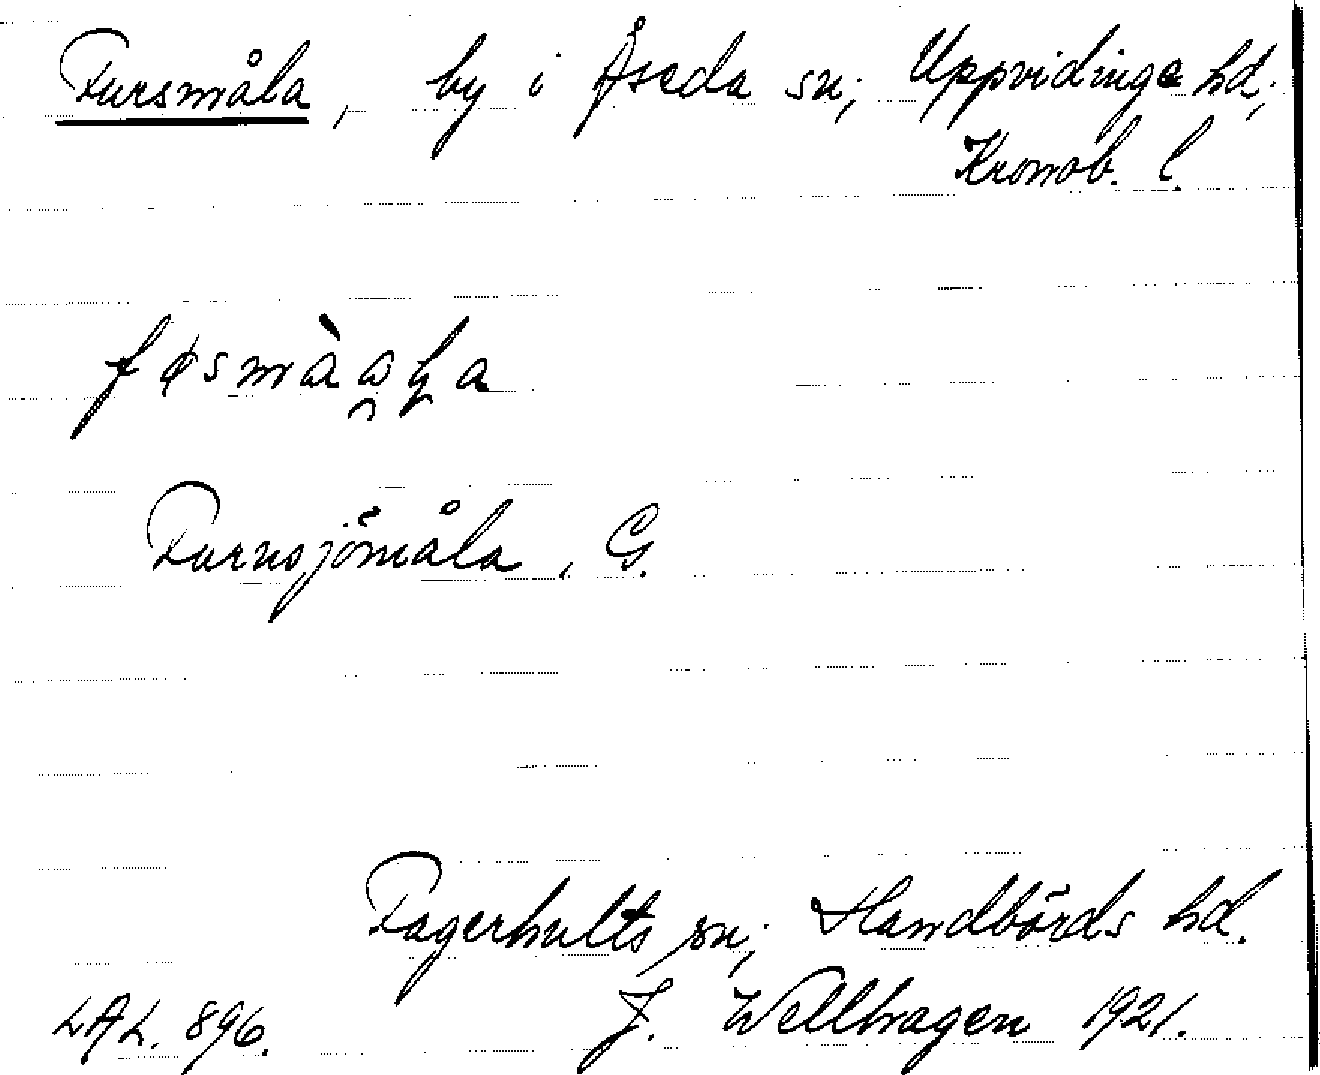 Fursmåla, by i Åseda sn; Uppvidinge hd;
Kronob. l.
Furusjömåla, G.
Fagerhults sn; Handbörds hd.
LAL. 896. J. Wellhagen 1921.